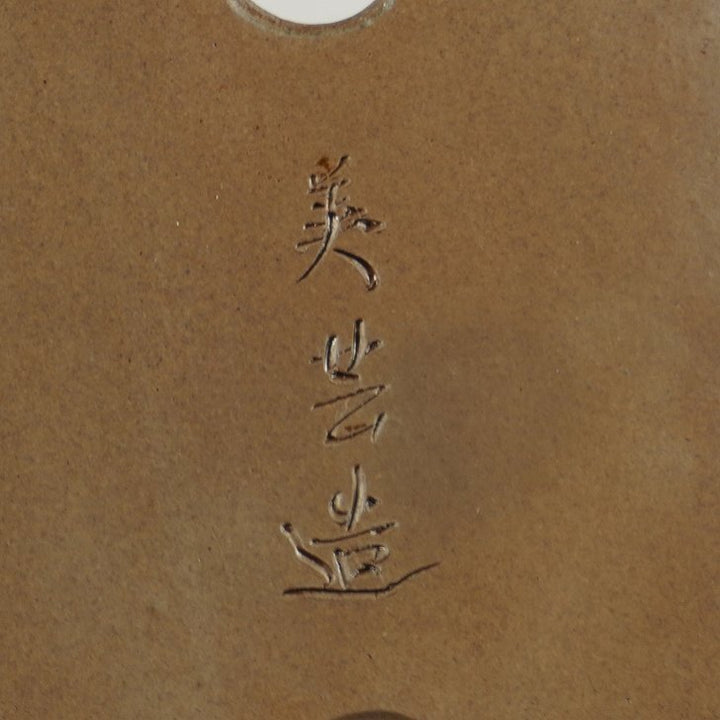 美芸造